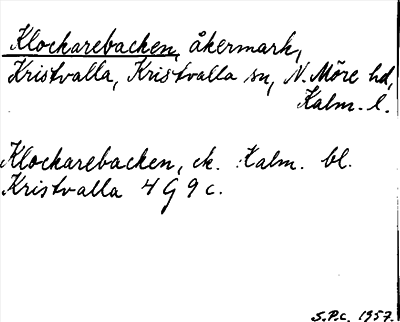 Klockarebacken, åkermark,
Kristvalla, Kristvalla sn, N. Möre hd,
Kalm. l.
Klockarebacken, ek. Kalm. bl.
Kristvalla 4 G 9 c.
S.P.C. 1957.